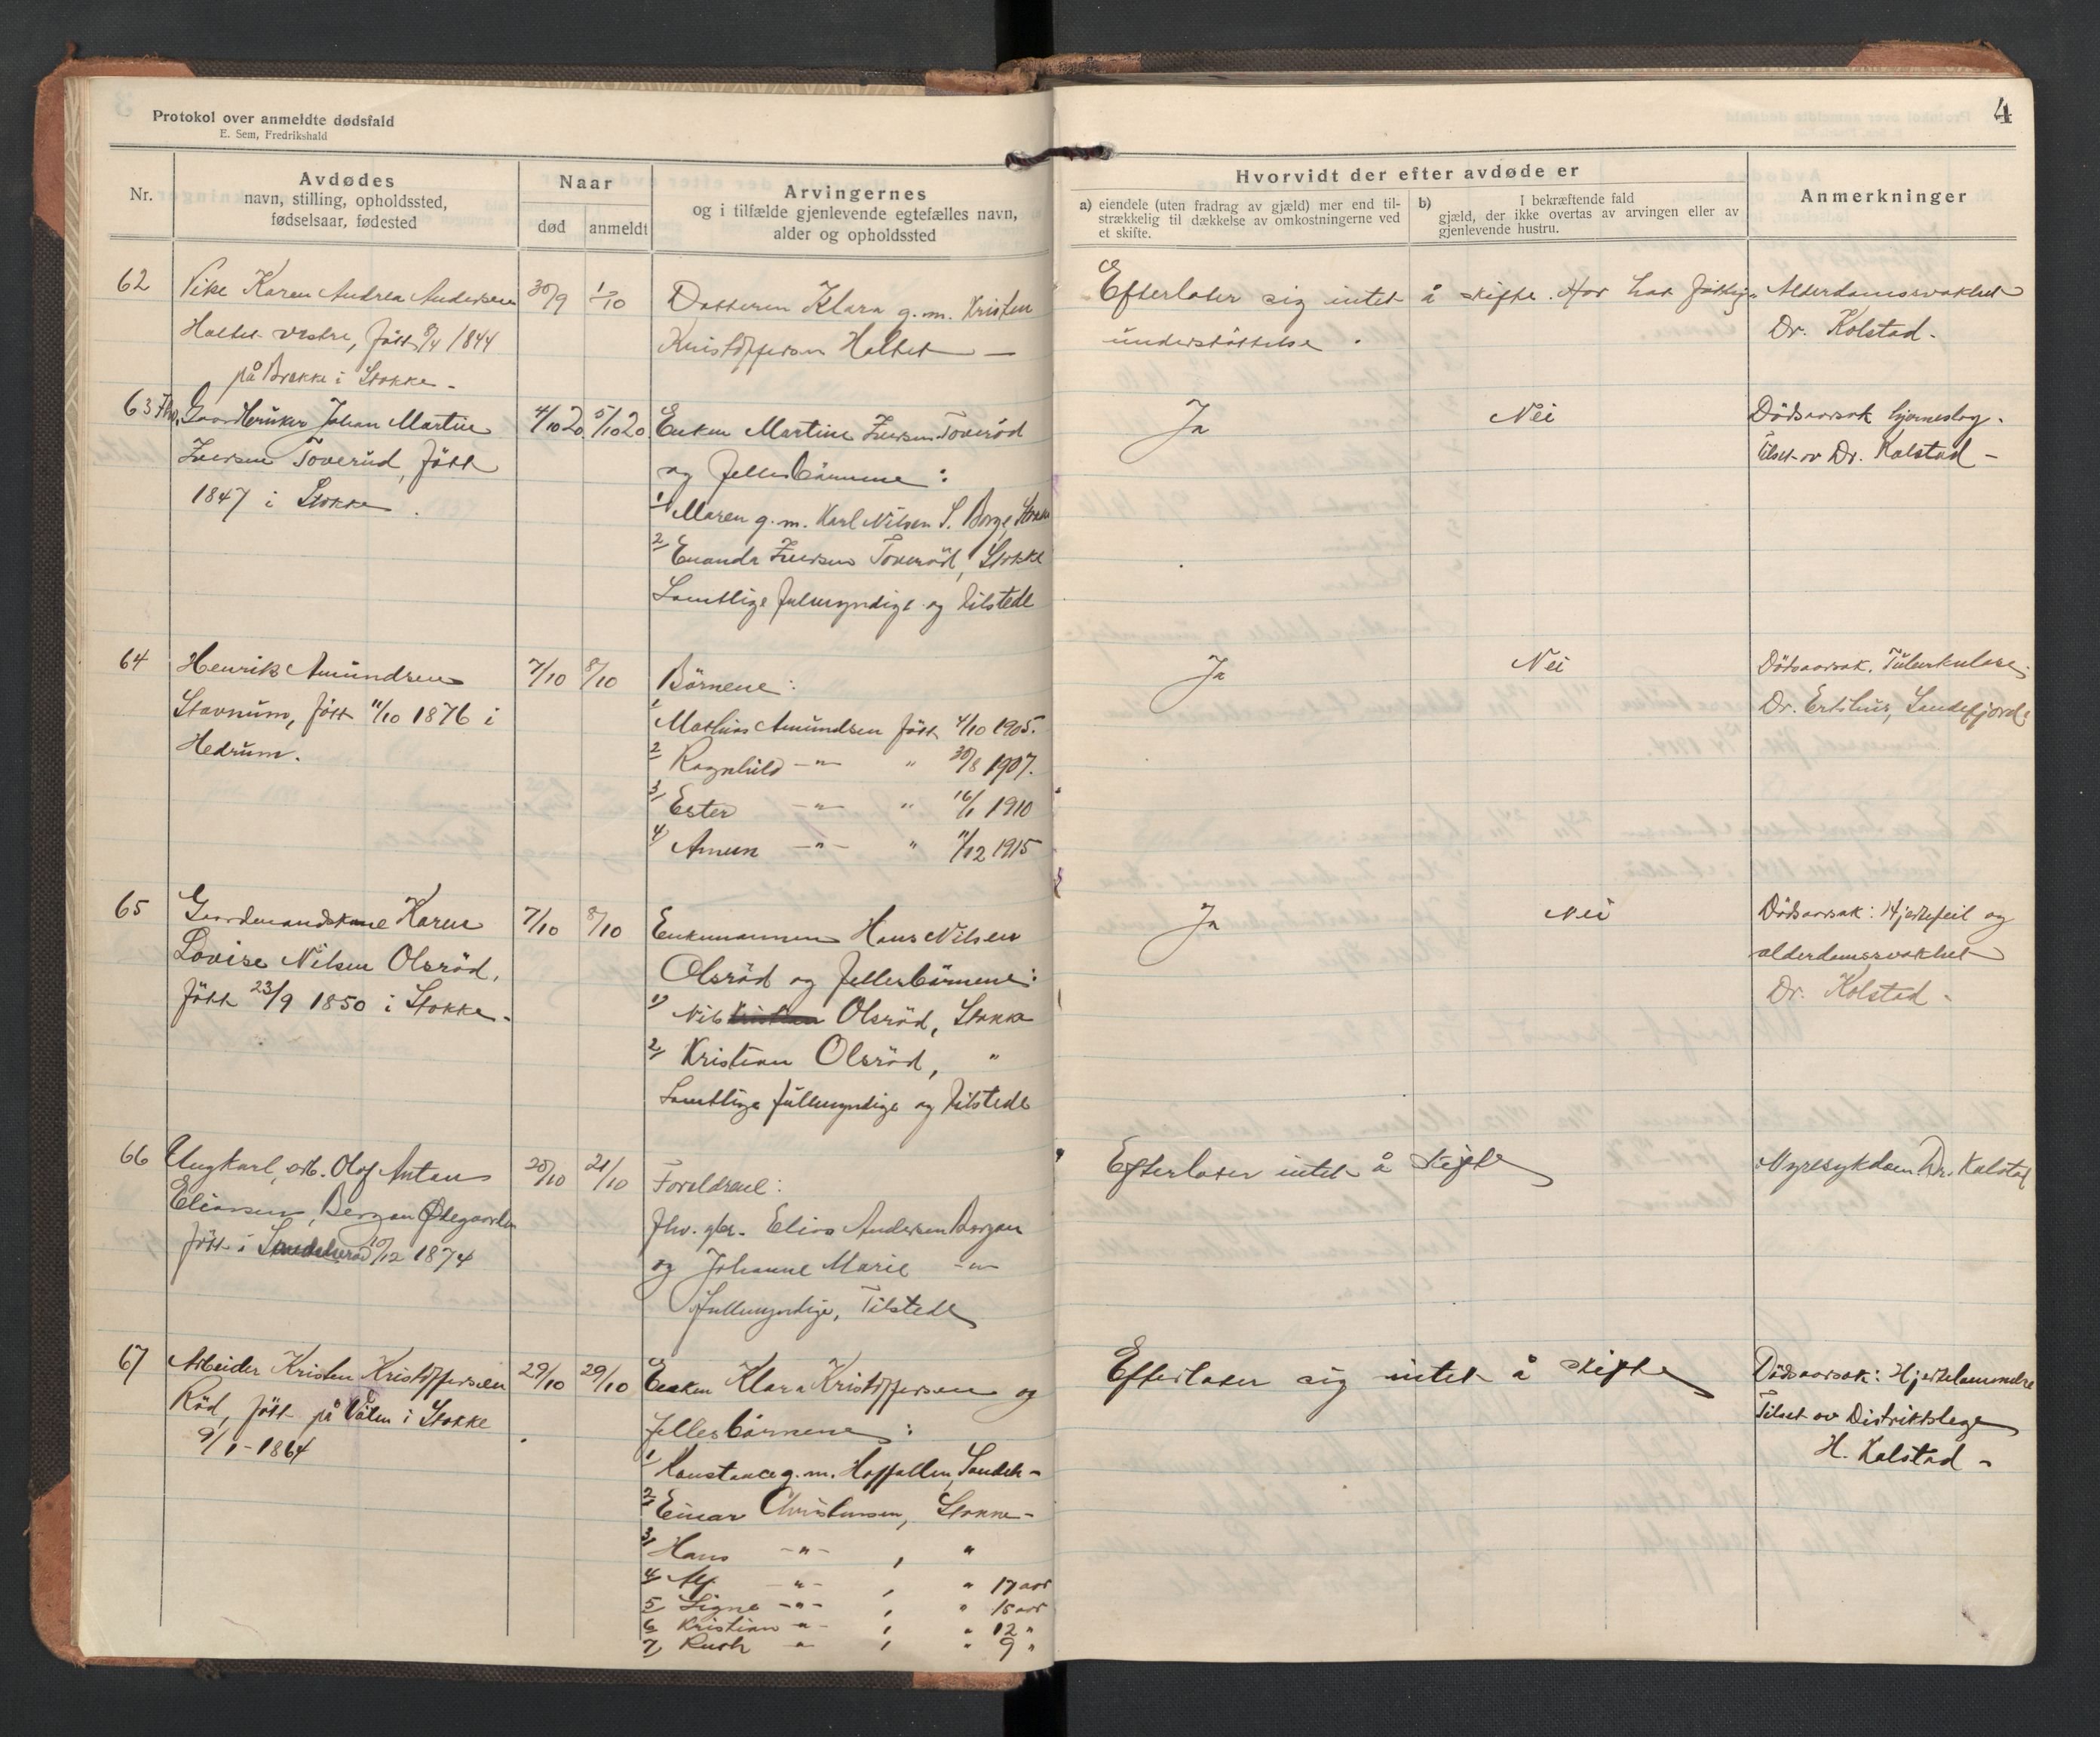 Protokol over anmeldte dødsfald
E. Sem, Fredrikshald
4
Nr.
Avdødes
navn, stilling, opholdssted,
fødselsaar, fødested
Naar
død
anmeldt
Arvingernes
og i tilfælde gjenlevende egtefælles navn,
alder og opholdssted
Hvorvidt der efter avdøde er
a) eiendele (uten fradrag av gjæld) mer end til-
strækkelig til dækkelse av omkostningerne ved
et skifte.
b) I bekræftende fald
gjæld, der ikke overtas av arvingen eller av
gjenlevende hustru.
Anmerkninger
62
Pike Karen Andrea Andersen
Holtet vestre, født 8/4 1844
på Brekke i Stokke -
30/9
1/10
Datteren Klara g.m. Kristen
Kristoffersen Holtet -
Efterlater sig intet å skifte. Har hat fattig-
understöttelse.
Alderdomssvakhet
Dr. Kolstad -
63
Fhv. Gaardbruker Johan Martin
Iversen Toveröd, Født
1847 i Stokke.
4/10 20
5/10 20
Enken Martine Iversen Toveröd
og fellesbörnene:
1/ Maren g.m. Karl Nilsen S. Borge, Stokke
2/ Evanda Iversen Toveröd, Stokke
Samtlige fulmyndige og tilstede
Ja
Nei
Dödsaarsak hjerneslag.
Tilset av Dr. Kolstad -
64
Henrik Amundsen
Stavnum, født 11/10 1876 i
Hedrum.
7/10
8/10
Börnene:
1 Mathias Amundsen født 4/10 1905.
2 Ragnhild -"- " 30/8 1907.
3/ Ester -"- " 16/1 1910
4/ Amun -"- " 11/12 1915
Ja
Nei
Dödsaarsak. Tuberkulose.
Dr. Sandefjord
65
Gaardmandskone Karen
Lovise Nilsen Olsröd,
född 23/9 1850 i Stokke -
7/10
8/10
Enkemannen Hans Nilsen
Olsröd og fellesbörnene:
1/ Nils Olsröd, Stokke
2/ Kristian Olsröd, "
Samtlige fullmyndige og tilstede
Ja
Nei
Dödsaarsak: Hjertefeil og
alderdomssvakhet
Dr. Kolstad -
66
Ungkarl, arb. Olaf Anton
Eliassen, Bergan Ødegaarden
født i Sandeherad 10/12 1874
20/10
21/10
Foreldrene:
fhv. gbr. Elias Andersen Bergan
og Johanne Marie -"-
Fullmyndige, Tilstede
Efterlater intet å skifte
Nyresykdom. Dr. Kolstad
67
Arbeider Kristen Kristoffersen
Röd, født på Vålen i Stokke
9/1 - 1864
29/10
29/10
Enken Klara Kristoffersen og
fellesbörnene:
1/ Konstance g.m. Sandeh-
2/ Einar Christensen, Stokke -
3/ Hans -"- , "
4/ Alf -"- , " 17 aar
5/ Signe -"- , " 15 aar
6/ Kristian -"- , " 12 "
7/ Ruth -"- , " 9 "
Efterlater sig intet å skifte
Dödsaarsak: Hjertelammelse
Tilset av Distriktslege
H. Kolstad -